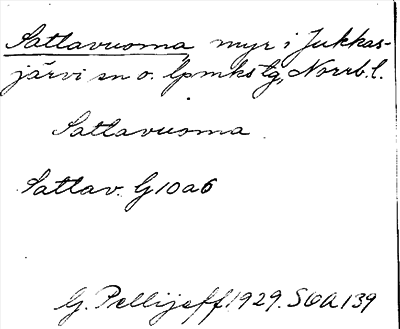 Sattavuoma myr i Jukkas-
järvi sn o. lpmkstg, Norrb. l.
Sattavuoma
Sattav. G10a6
G. Pellijeff 1929. SOA 139